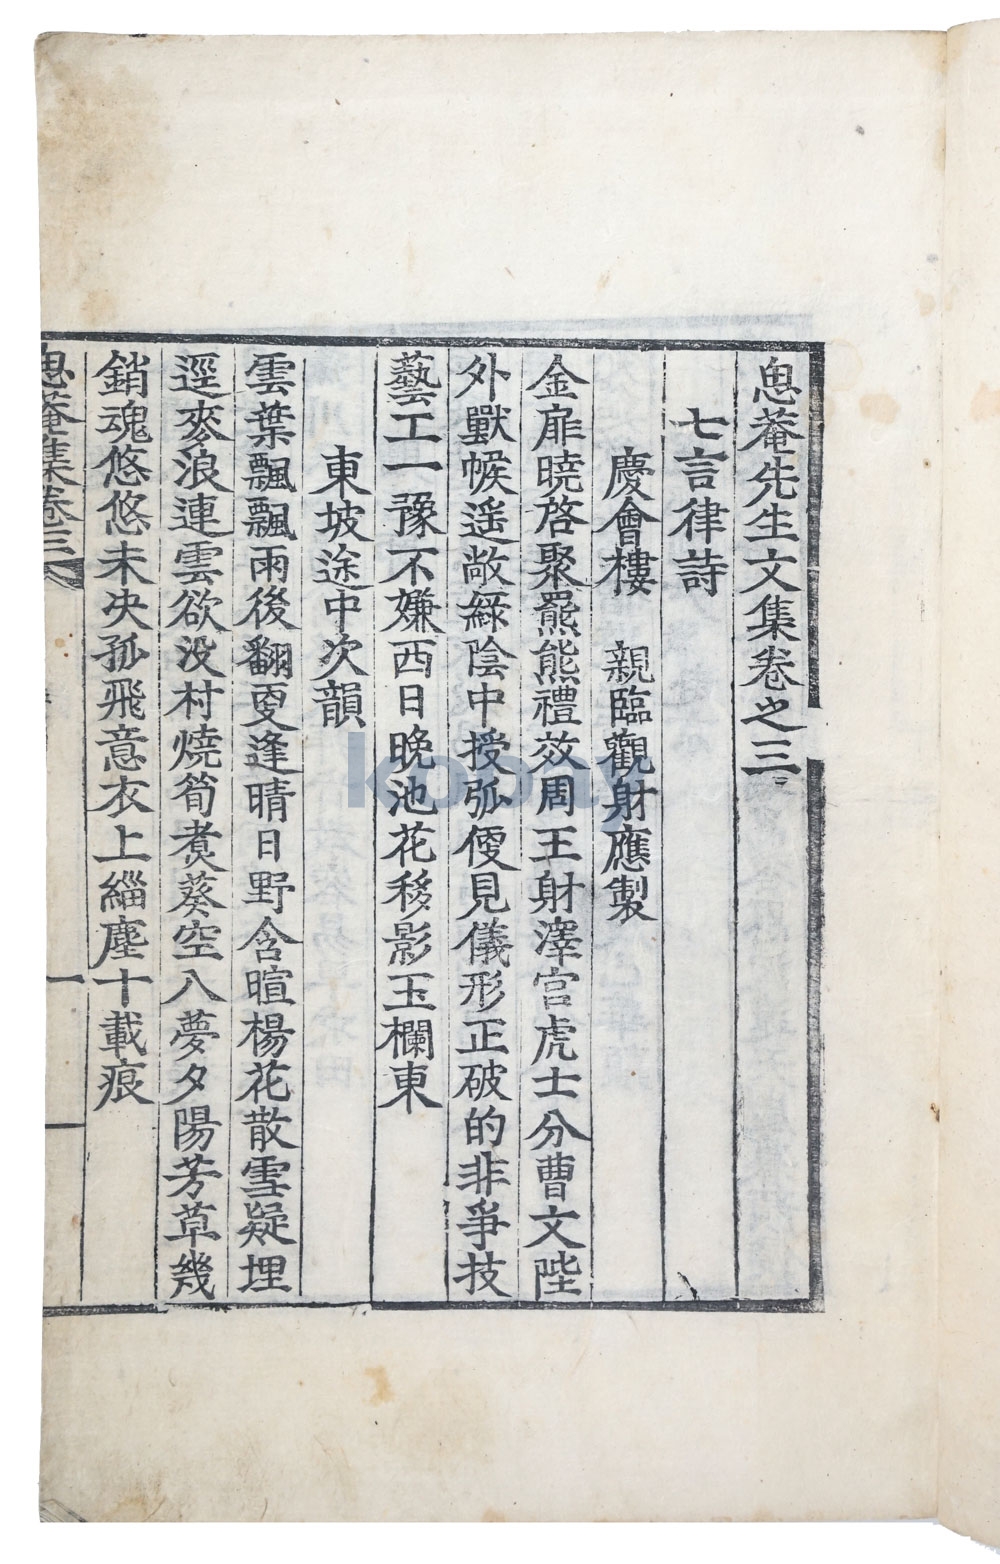 恖菴先生文集卷之三
七言律詩
慶會樓 親臨觀射應製
金扉曉啓聚羆熊禮效周王射澤宮虎士分曹文陛
外獸帿遥敞綠陰中授弧便見儀形正破的非爭技
藝工一豫不嫌西日晚池花移影玉欄東
東坡途中次韻
雲葉飄飄雨後翻更逢晴日野含暄楊花散雪疑埋
逕麥浪連雲欲没村燒筍煑葵空入夢夕陽芳草幾
銷魂悠悠未决孤飛意衣上緇塵十載痕
恖菴集卷三 一
kobay